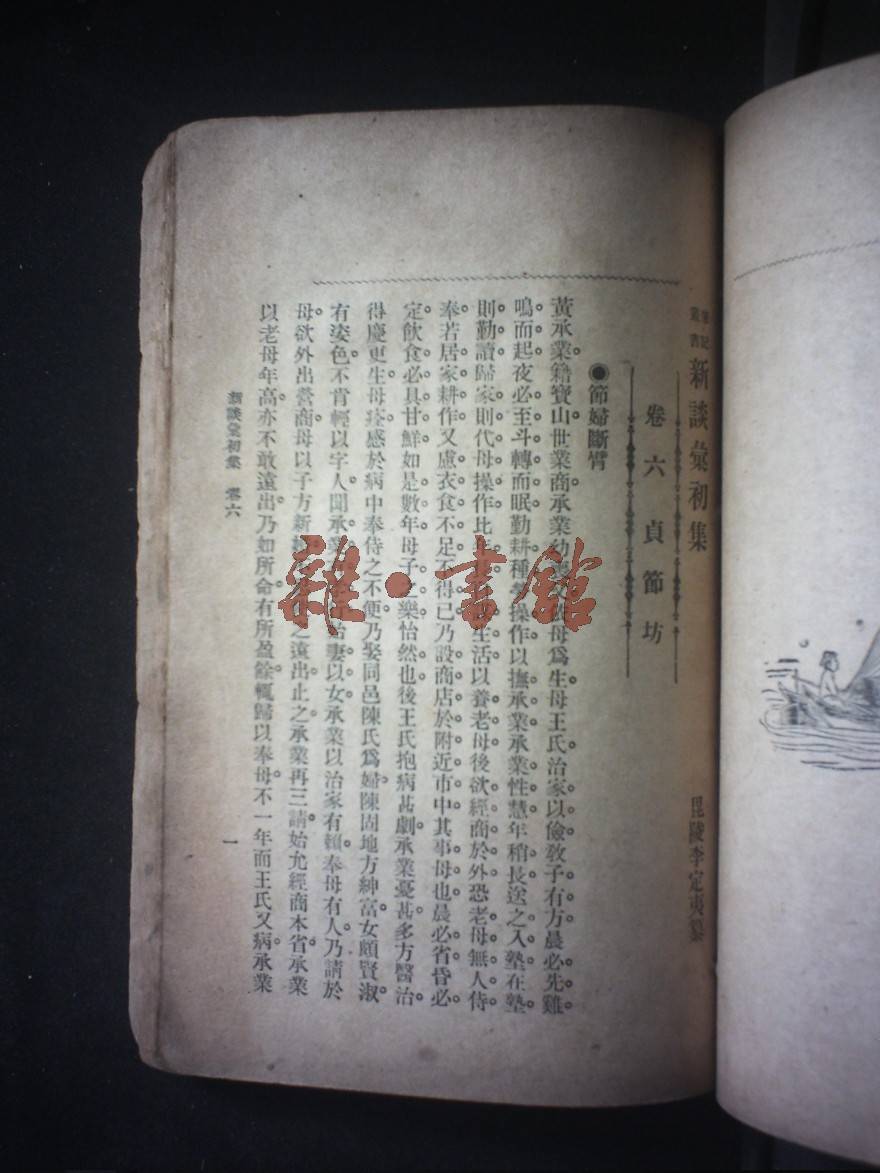 筆記叢書 新談彙初集 毘陵李定夷纂
卷六 貞節坊
●節婦斷臂
黃承業籍寶山世業商承業幼 母爲生母王氏治家以儉敎子有方晨必先雞
鳴而起夜必至斗轉而眠勤耕種 操作以撫承業承業性慧年稍長送之入塾在塾
則勤讀歸家則代母操作比 生活以養老母後欲經商於外恐老母無人侍
奉若居家耕作又慮衣食不足不得已乃設商店於附近市中其事母也晨必省昏必
定飲食必具甘鮮如是數年母子之樂怡然也後王氏抱病甚劇承業憂甚多方醫治
得慶更生母痊感於病中奉侍之不便乃娶同邑陳氏爲婦陳固地方紳富女頗賢淑
有姿色不肯輕以字人聞承業 始妻以女承業以治家有賴奉母有人乃請於
母欲外出營商母以子方新 之遠出止之承業再三請始允經商本省承業
以老母年高亦不敢遠出乃如所命有所盈餘輒歸以奉母不一年而王氏又病承業
新談彙初集 卷六
一
雜·書館